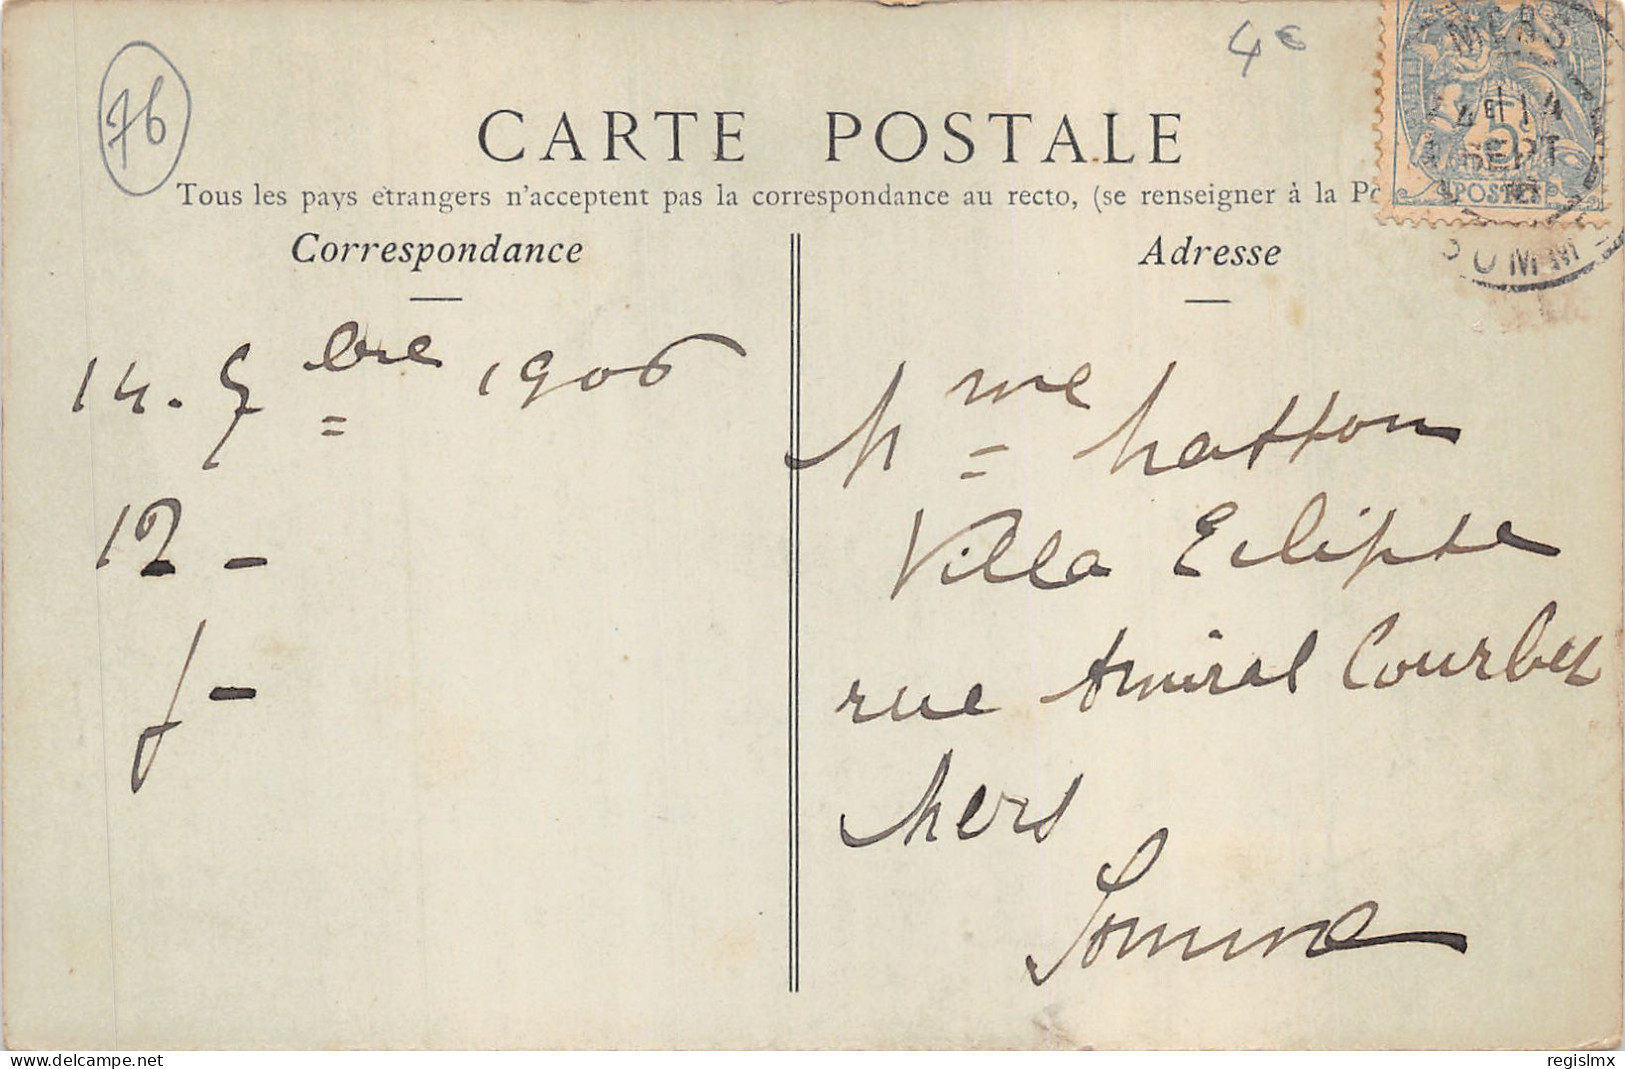 76
4€
CARTE POSTALE
Tous les pays etrangers n'acceptent pas la correspondance au recto, (se renseigner à la Po
Correspondance
Adresse
MERS
4E 14
SEPT
5c
POSTES
SOMM
14. 7bre 1906
12 -
f -
Mme Matton
Villa Eclipse
rue Amiral Courbet
Mers
Somme
delcampe.net
regislmx